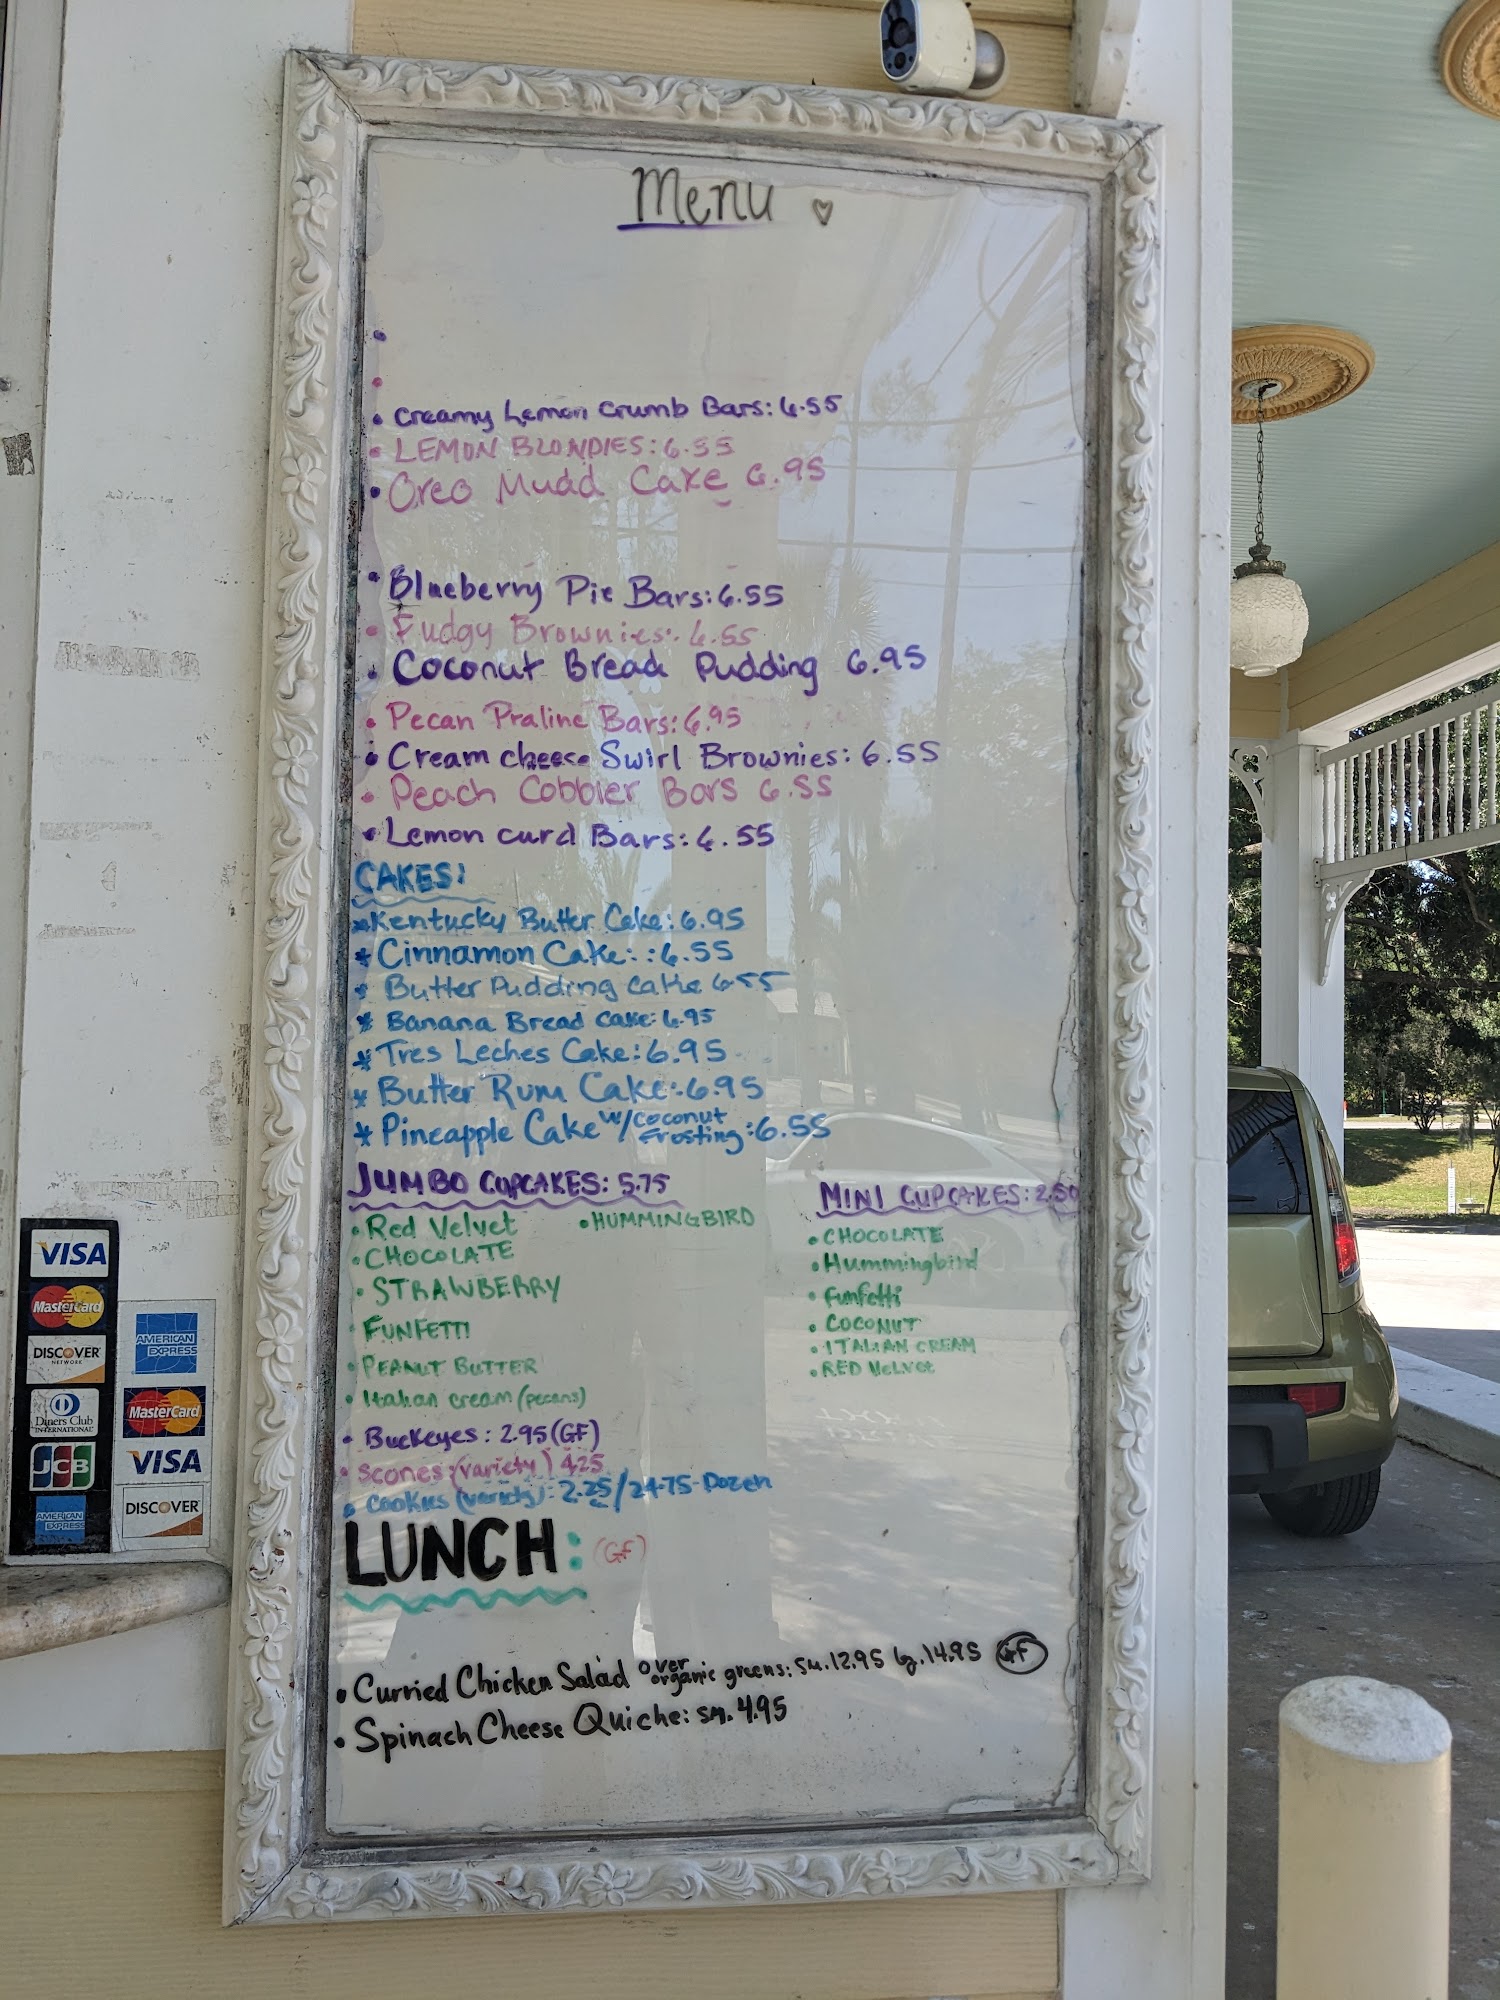 Menu
Creamy Lemon Crumb Bars: 6.55
LEMON BLONDIES: 6.55
Oreo Mudd Cake 6.95
Blueberry Pie Bars: 6.55
Fudgy Brownies: 6.55
Coconut Bread Pudding 6.95
Pecan Praline Bars: 6.95
Cream cheese Swirl Brownies: 6.55
Peach Cobbler Bars 6.55
Lemon curd Bars: 6.55
CAKES:
*Kentucky Butter Cake: 6.95
*Cinnamon Cake: :6.55
Butter Pudding Cake 6.55
* Banana Bread Cake: 6.95
*Tres Leches Cake: 6.95
* Butter Rum Cake: 6.95
* Pineapple Cake w/coconut Frosting: 6.55
JUMBO CUPCAKES: 5.75
• Red Velvet
• HUMMINGBIRD
• CHOCOLATE
• STRAWBERRY
• FUNFETTI
• PEANUT BUTTER
• Italian cream (pecans)
MINI CUPCAKES: 2.50
• CHOCOLATE
• Hummingbird
• Funfetti
• COCONUT
• ITALIAN CREAM
• RED Velvet
• Buckeyes: 2.95 (GF)
• Scones: (variety) 4.25
• Cookies (variety): 2.25/24.75-Dozen
LUNCH: (GF)
• Curried Chicken Salad over organic greens: sm. 12.95 lg. 14.95 GF
• Spinach Cheese Quiche: sm. 4.95
VISA
MasterCard
DISCOVER
NETWORK
Diners Club
INTERNATIONAL
JCB
AMERICAN EXPRESS
AMERICAN EXPRESS
MasterCard
VISA
DISCOVER